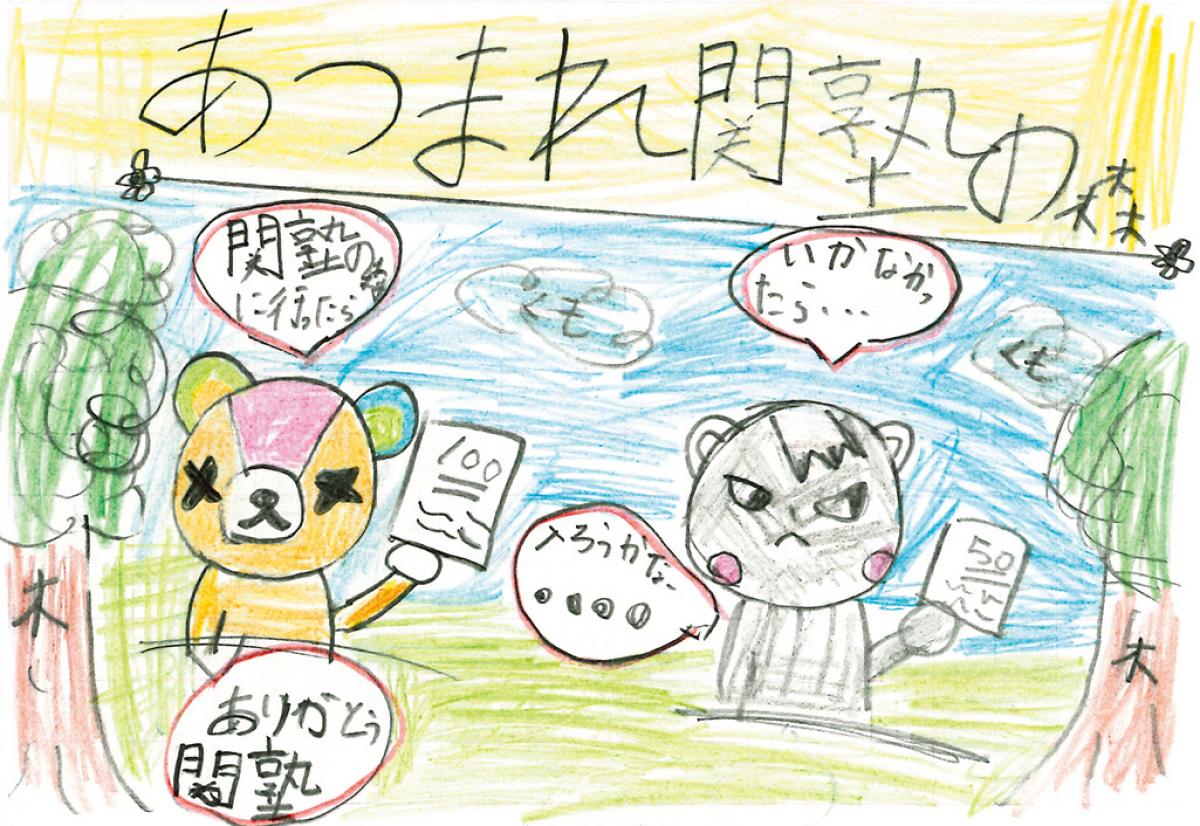 あつまれ関塾の森
関塾の森
に行ったら
いかなかっ
たら・・・
くも
くも
100
50
入ろうかな…
木
木
ありがとう
関塾